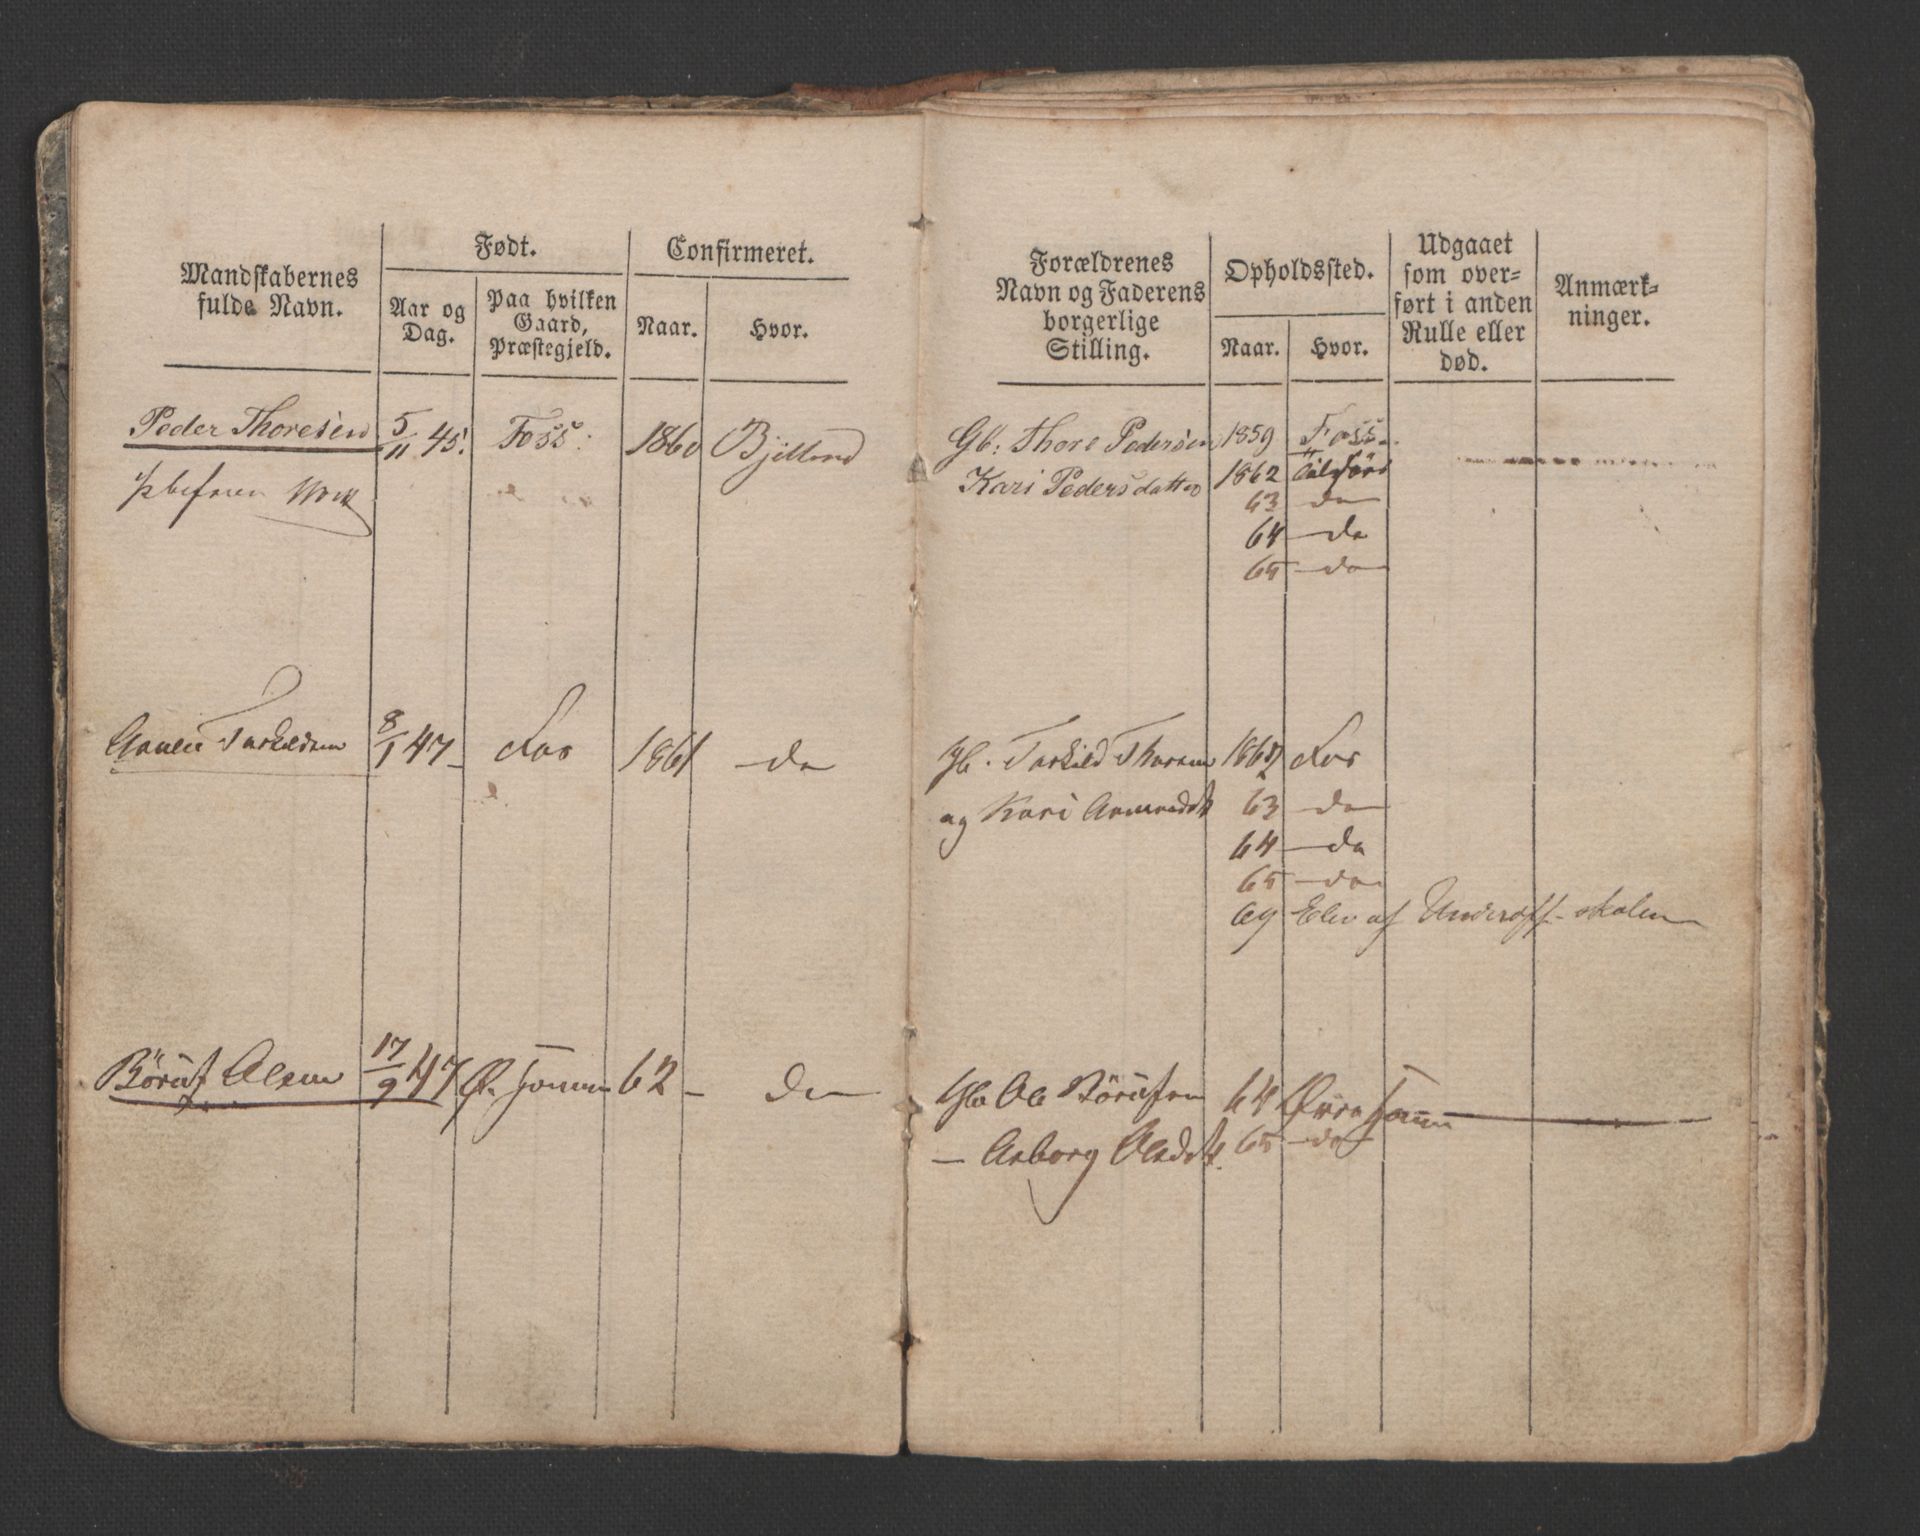 Mandskabernes fulde Navn.
Født.
Aar og Dag.
Paa hvilken Gaard, Præstegjeld.
Confirmeret.
Naar.
Hvor.
Forældrenes Navn og Faderens borgerlige Stilling.
Opholdssted.
Naar.
Hvor.
Udgaaet som overført i anden Rulle eller død.
Anmærkninger.
Peder Thoresen 5/11 45. Foss. 1860 Bjelland
Gb. Thore Pedersen 1859 Foss.
Kari Pedersdatter 1862
63 do
64 do
65 do
Tarkildsen 8/1 47 Fos 1861 do
Gb. Tarkild Thoresen 1862 Fos
og Kari 63 do
64 do
65 do
69 Elev af Underoff. skolen
Børuf Olsen 17/9 47 Ø. 62 do
Gb Ole Børufsen 64 Øvre
Aaborg Olsdt. 65 do